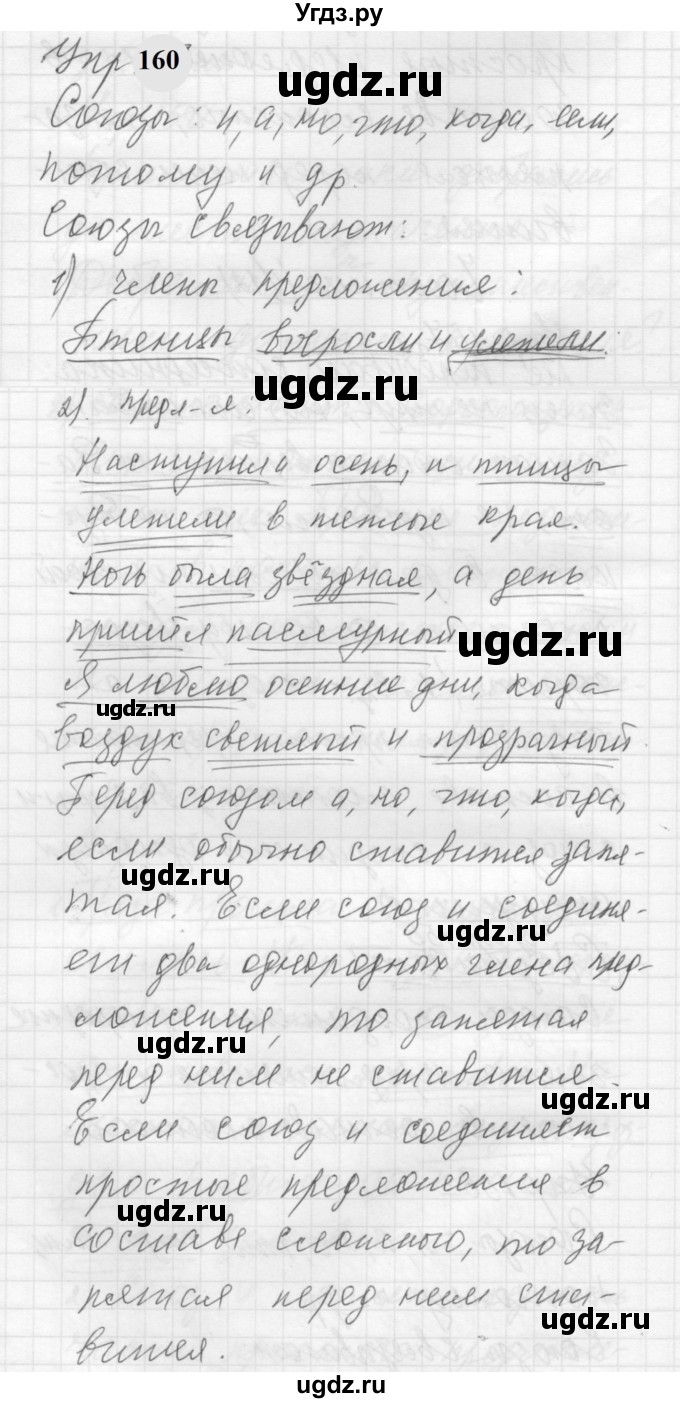 Угдз.ру
Упр 160
ugdz.ru
Союзы: и, а, но, что, когда, если,
потому и др.
Союзы связывают:
ugdz.ru
1) члены предложения:
Птенцы выросли и улетели.
ugdz.ru
2). предл-я:
Наступила осень, и птицы
улетели в теплые края.
Ночь была звёздная, а день
пришёл пасмурный
ugdz.ru
Я люблю осенние дни, когда
ugdz.ru
воздух светлый и прозрачный.
Перед союзом а, но, что, когда,
ugdz.ru
если обычно ставится запя-
ugdz.ru
тая. Если союз и соединя-
ugdz.ru
ет два однородных члена пред-
ложения, то запятая
ugdz.ru
перед ним не ставится.
ugdz.ru
Если союз и соединяет
простые предложения в
ugdz.ru
составе сложного, то за-
пятая перед ним ста-
ugdz.ru
вится.
ugdz.ru